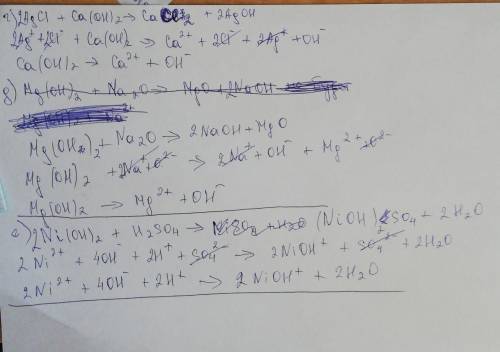 г) 2AgCl + Ca(OH)2 → CaCl2 + 2AgOH
2Ag+ + 2Cl- + Ca(OH)2 → Ca2+ + 2Cl- + 2Ag+ + OH-
Ca(OH)2 → Ca2+ + OH-
д) Mg(OH)2 + Na2O → MgO + 2NaOH
Mg(OH)2 + Na2O → 2NaOH + MgO
Mg(OH)2 + 2Na+ + O2- → 2Na+ + OH- + Mg2+ + O2-
Mg(OH)2 → Mg2+ + OH-
е) 2Ni(OH)2 + H2SO4 → NiSO4 + H2O (NiOH)2SO4 + 2H2O
2Ni2+ + 4OH- + 2H+ + SO42- → 2NiOH+ + SO42- + 2H2O
2Ni2+ + 4OH- + 2H+ → 2NiOH+ + 2H2O